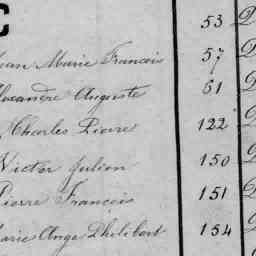 C 53 D
Jean Marie Francois 57 D
Alexandre Auguste 61 D
Charles Pierre 122 D
Victor Julien 150 D
Pierre Francois 151 D
Marie Ange Philibert 154 D